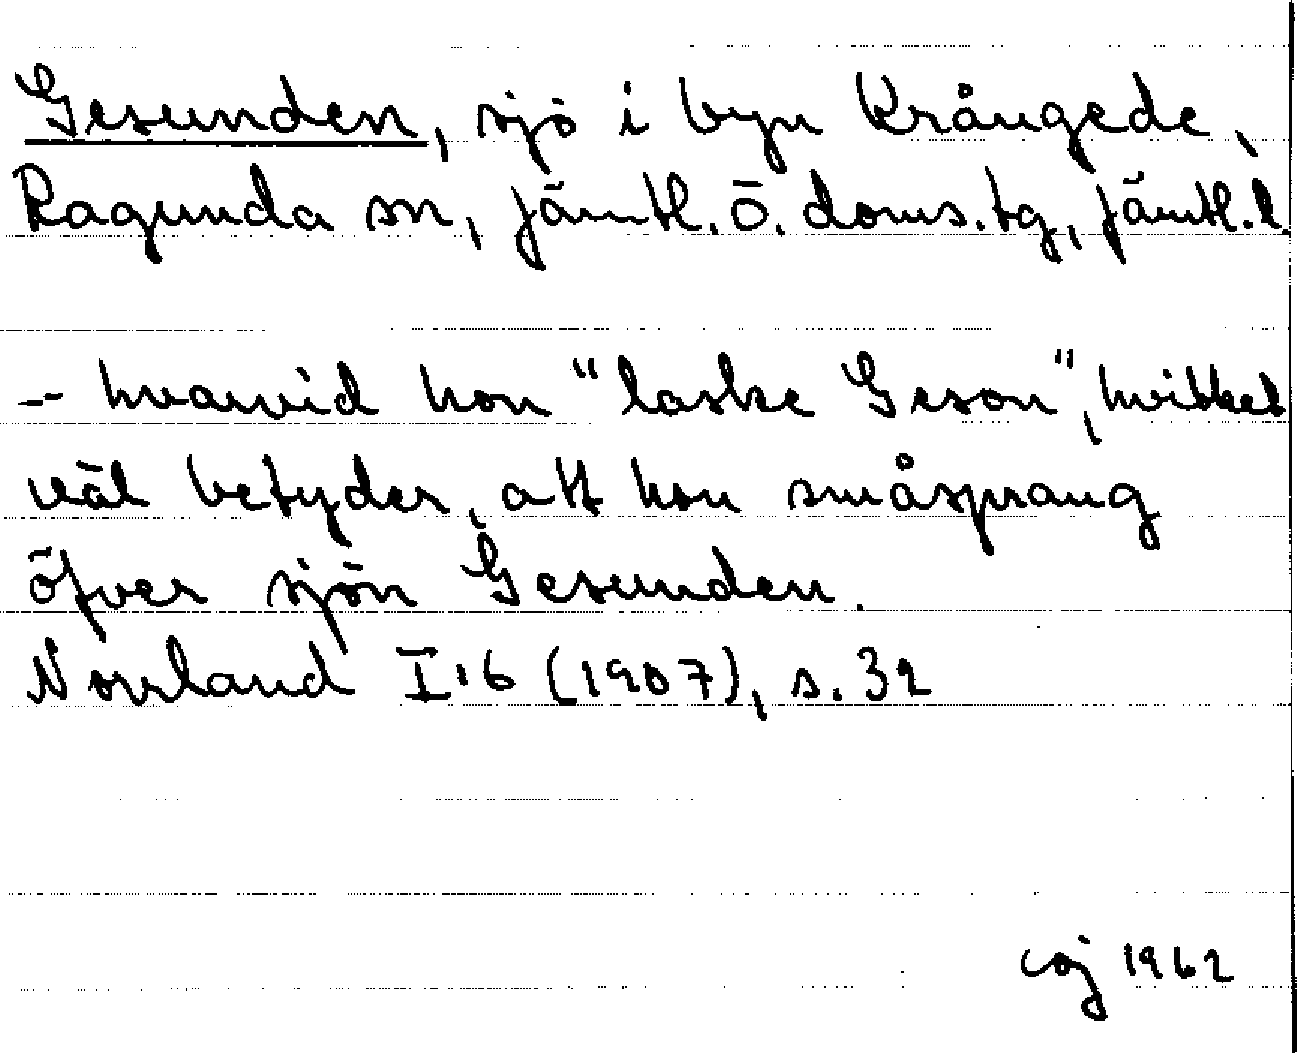 Gesunden, sjö i byn Krångede,
Ragunda sn, Jämtl. ö. doms. tg, Jämtl. l.
-- hvarvid hon "laske Geson", hvilket
väl betyder, att hon småsprang
öfver sjön Gesunden.
Norrland I:6 (1907), s. 32
caj 1962